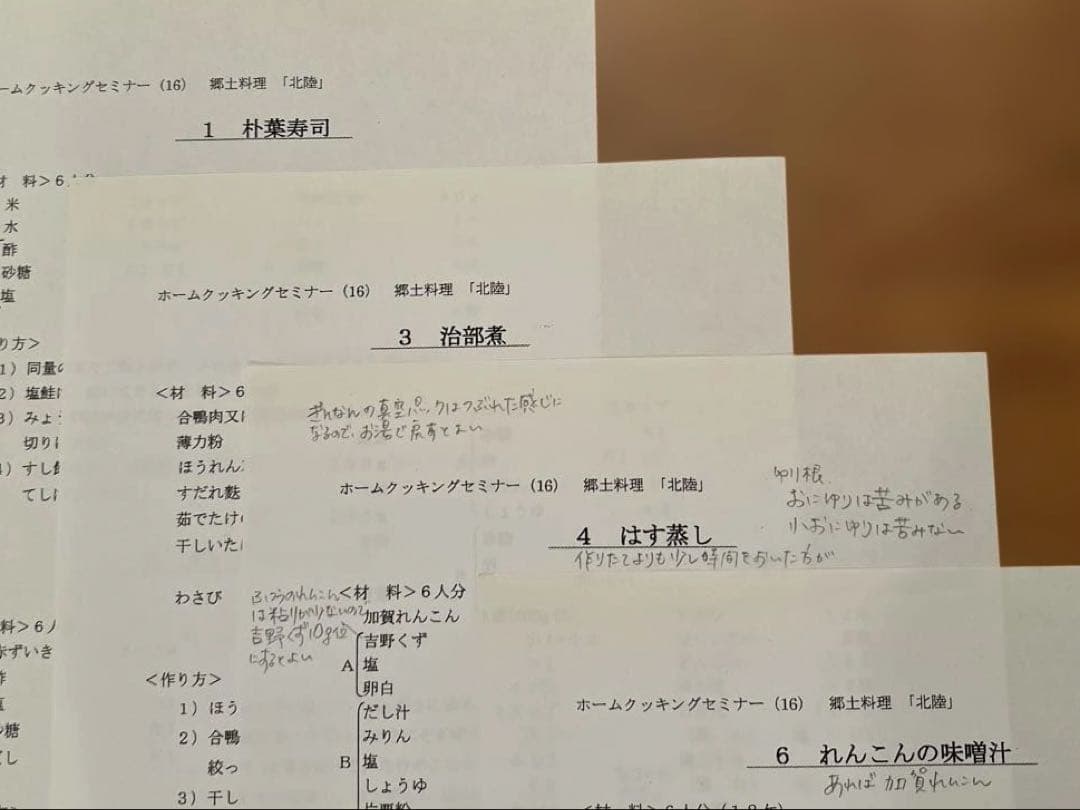 ームクッキングセミナー（16） 郷土料理 「北陸」
1 朴葉寿司
材 料＞6人分
米
水
酢
砂糖
塩
り方＞
1）同量の
2）塩鮭に
3）みょう
切りに
4）すし飯
てしに
料＞6人
赤ずいき
酢
塩
砂糖
だし
ホームクッキングセミナー（16） 郷土料理 「北陸」
3 治部煮
＜材 料＞6
合鴨肉又に
薄力粉
ほうれん
すだれ麩
茹でたけの
干しいた
わさび
＜作り方＞
1）ほう
2）合鴨
絞っ
3）干し
ぎんなんの真空パックはつぶれた感じに
なるので、お湯で戻すとよい
ホームクッキングセミナー（16） 郷土料理 「北陸」
ゆり根
おにゆりは苦みがある
小おにゆりは苦みない
4 はす蒸し
作りたてよりも少し時間をおいた方が
ふつうのれんこん
は粘りが少ないので
吉野くず10g位
にするとよい
＜材 料＞6人分
加賀れんこん
A
吉野くず
塩
卵白
B
だし汁
みりん
塩
しょうゆ
片栗粉
ホームクッキングセミナー（16） 郷土料理 「北陸」
6 れんこんの味噌汁
あれば加賀れんこん
＜材 料＞6人分（1.2